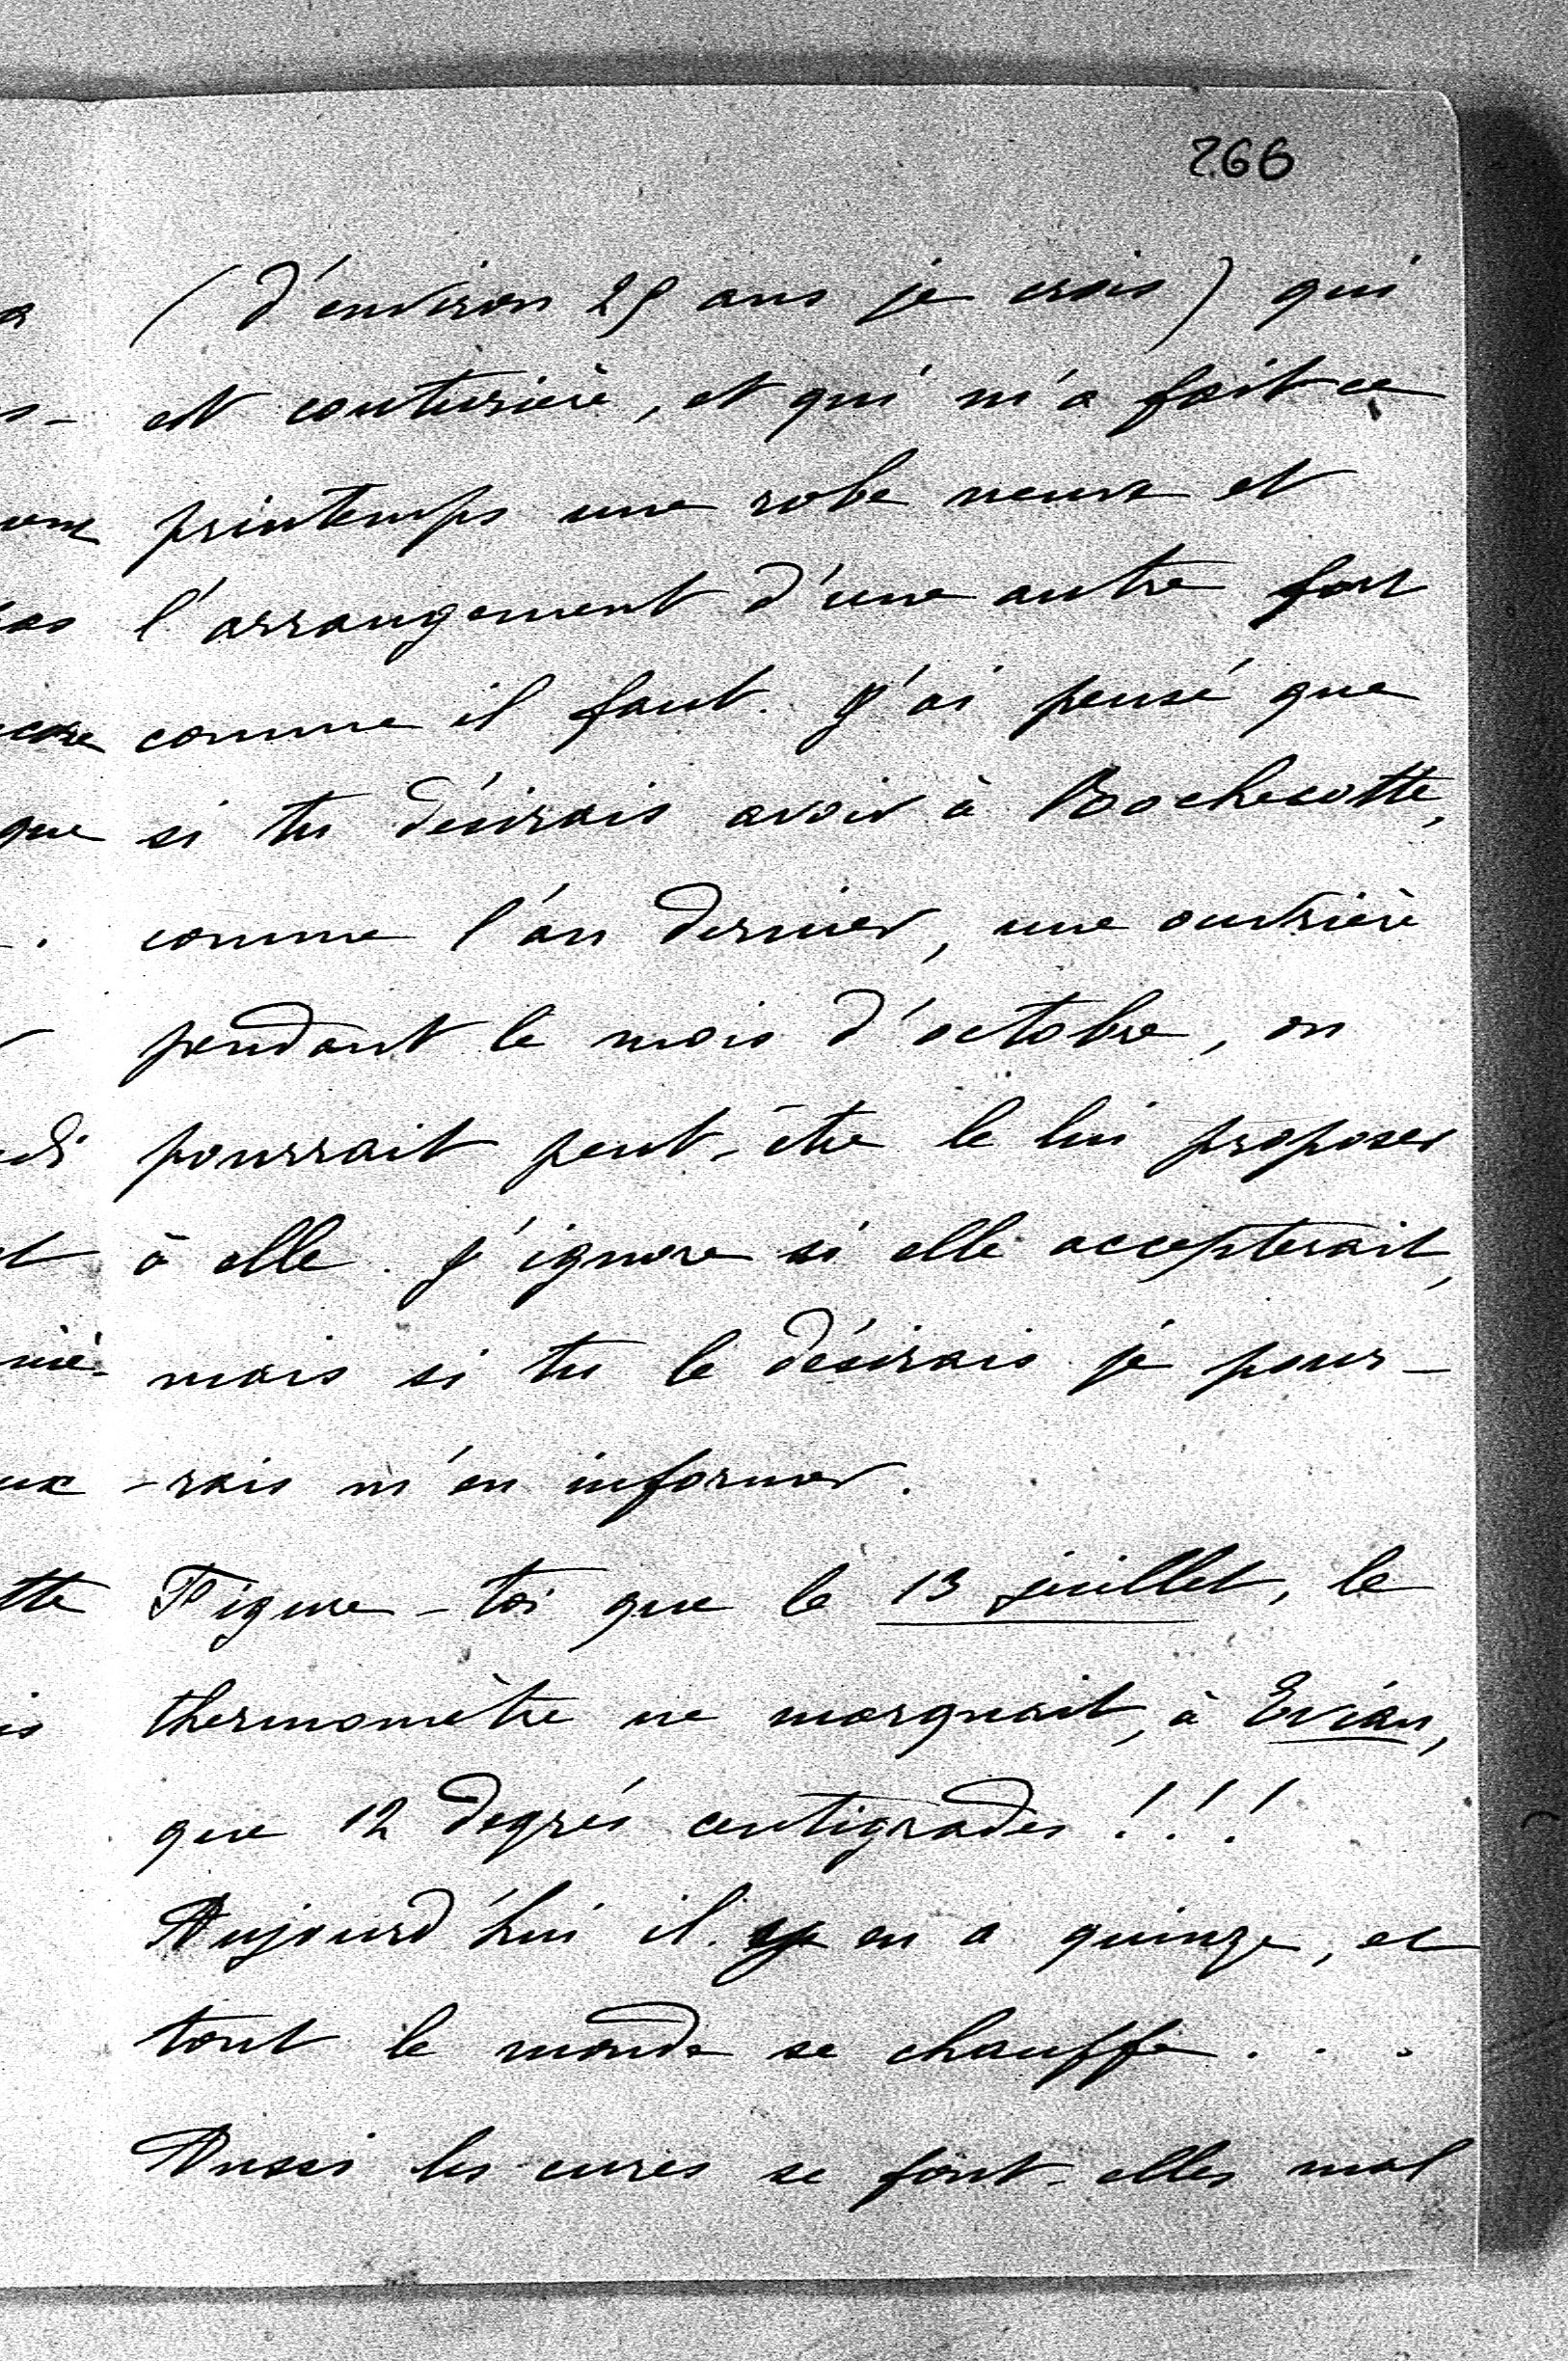 266
(d'environ 25 ans je crois) qui
est couturière, et qui m'a fait ce
printemps une robe neuve et
l'arrangement d'une autre fort
comme il faut. J'ai pensé que
si tu désirais avoir à Rochecotte,
comme l'an dernier, une ouvrière
pendant le mois d'octobre, on
pourrait peut-être le lui proposer
à elle. J'ignore si elle accepterait,
mais si tu le désirais je pour-
-rais m'en informer.
Figure-toi que le 13 juillet, le
thermomètre ne marquait, à Evian,
que 12 degrés centigrades!!!
Aujourd'hui il y en a quinze, et
tout le monde se chauffe...
Aussi les cures se font-elles mal